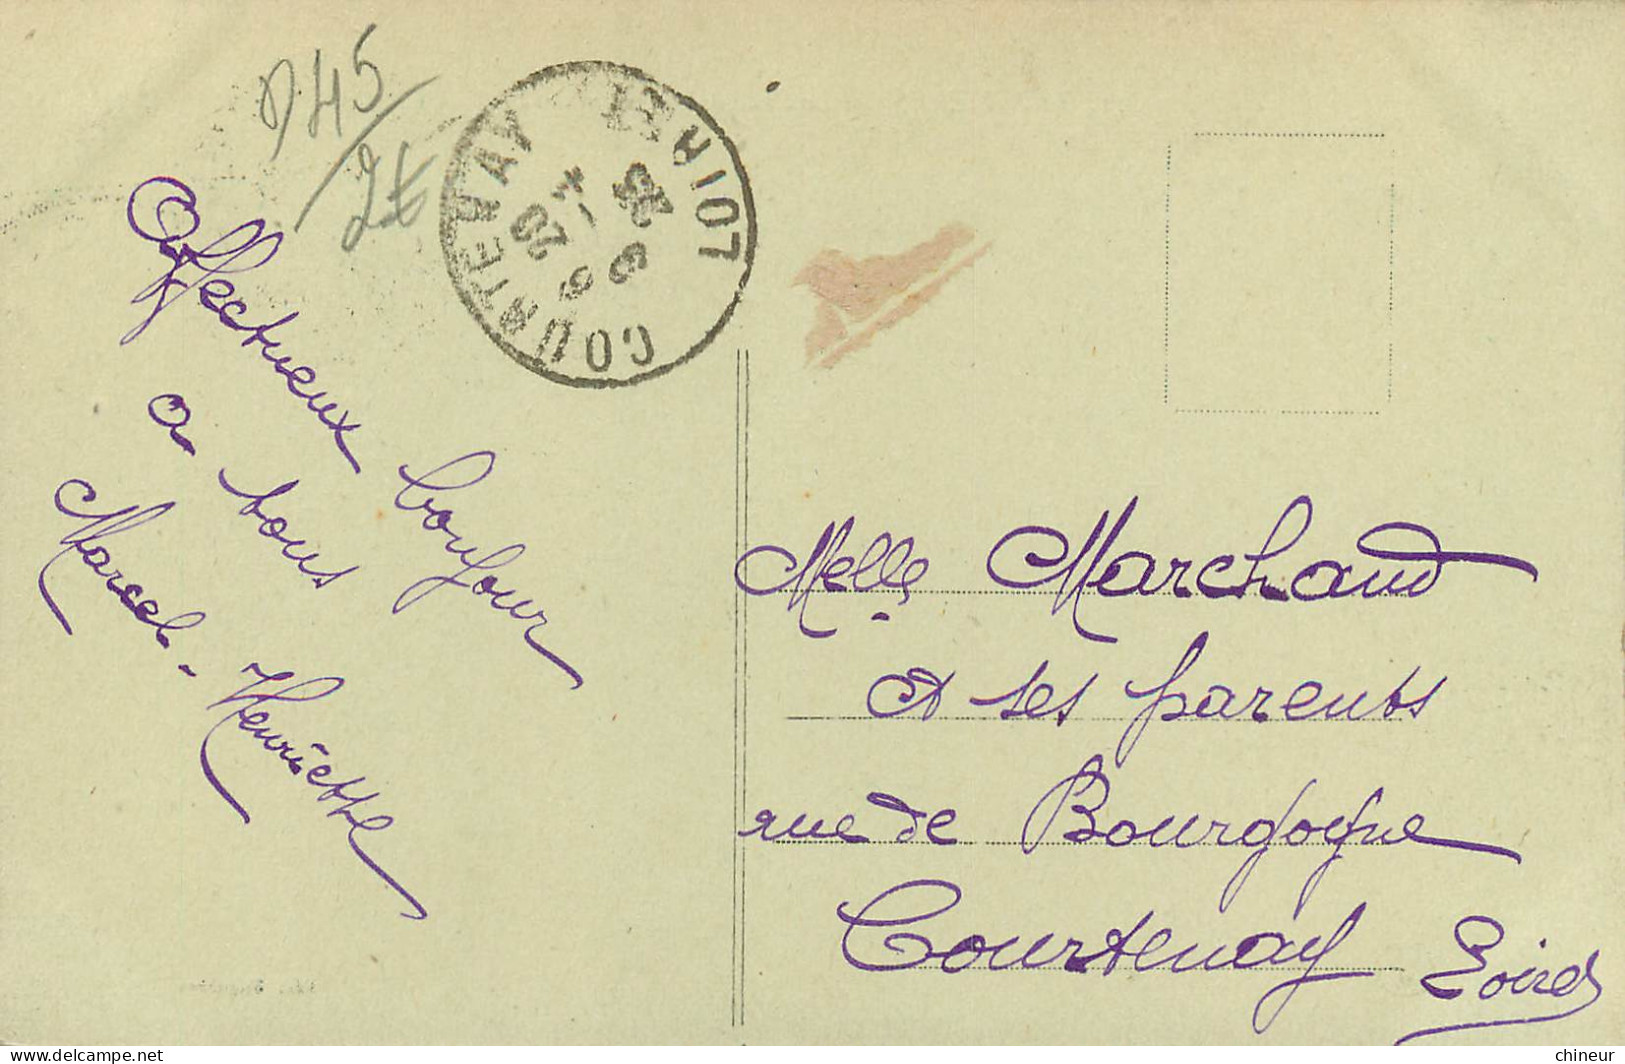 D45
2€
COURTENAY
LOIRET
Affectueux bonjour
a tous
Marcel - Henriette
Melle Marchand
et ses parents
rue de Bourgogne
Courtenay
Loiret
delcampe.net
chineur